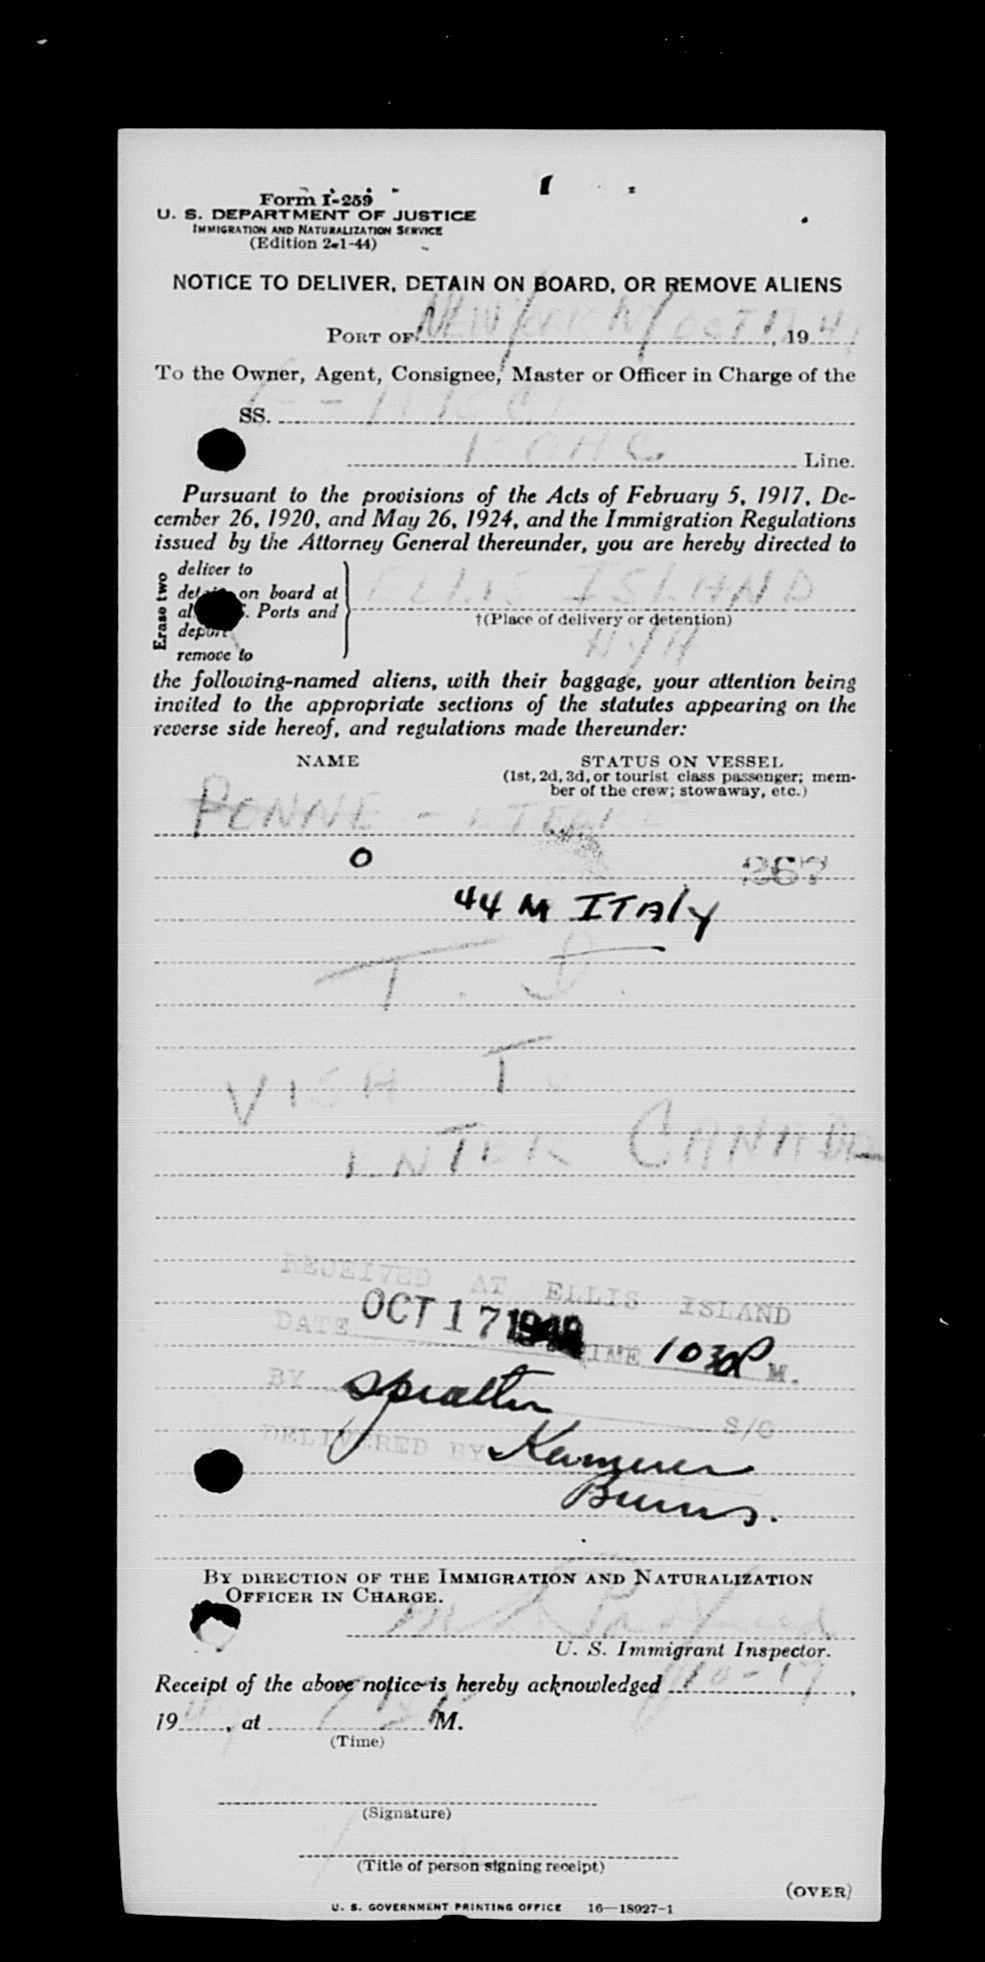 Form I-259
U. S. DEPARTMENT OF JUSTICE
IMMIGRATION AND NATURALIZATION SERVICE
(Edition 2-1-44)
NOTICE TO DELIVER, DETAIN ON BOARD, OR REMOVE ALIENS
PORT OF NEW YORK NY OCT 17, 194
To the Owner, Agent, Consignee, Master or Officer in Charge of the
SS.
Line.
Pursuant to the provisions of the Acts of February 5, 1917, De-
cember 26, 1920, and May 26, 1924, and the Immigration Regulations
issued by the Attorney General thereunder, you are hereby directed to
Erase two
deliver to
on board at
Ports and
deport
remove to
ELLIS ISLAND
†(Place of delivery or detention)
NYH
the following-named aliens, with their baggage, your attention being
invited to the appropriate sections of the statutes appearing on the
reverse side hereof, and regulations made thereunder:
NAME STATUS ON VESSEL
(1st, 2d, 3d, or tourist class passenger; mem-
ber of the crew; stowaway, etc.)
PONNE -
O 367
44 M ITALY
T. D.
VISA TO
ENTER CANADA
RECEIVED AT ELLIS ISLAND
DATE OCT 17 1949 TIME 1030P M.
BY S/O
DELIVERED BY
Burns.
BY DIRECTION OF THE IMMIGRATION AND NATURALIZATION
OFFICER IN CHARGE.
U. S. Immigrant Inspector.
Receipt of the above notice is hereby acknowledged 10-17,
19, at M.
(Time)
(Signature)
(Title of person signing receipt)
(OVER)
U. S. GOVERNMENT PRINTING OFFICE 16—18027-1